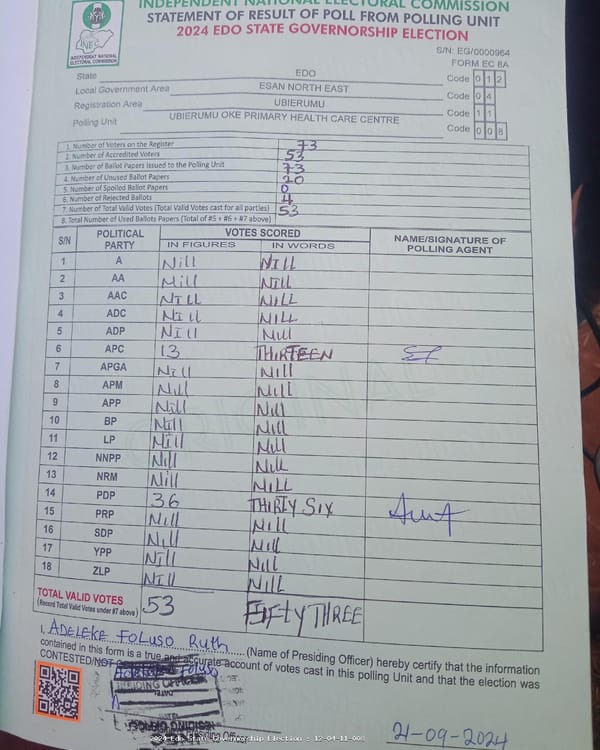 INDEPENDENT NATIONAL ELECTORAL COMMISSION
STATEMENT OF RESULT OF POLL FROM POLLING UNIT
2024 EDO STATE GOVERNORSHIP ELECTION
INEC
INDEPENDENT NATIONAL ELECTORAL COMMISSION
S/N: EG/0000964
FORM EC 8A
State EDO Code 0 1 2
Local Government Area ESAN NORTH EAST Code 0 4
Registration Area UBIERUMU Code 1 1
Polling Unit UBIERUMU OKE PRIMARY HEALTH CARE CENTRE Code 0 0 8
1. Number of Voters on the Register 73
2. Number of Accredited Voters 53
3. Number of Ballot Papers Issued to the Polling Unit 73
4. Number of Unused Ballot Papers 20
5. Number of Spoiled Ballot Papers 0
6. Number of Rejected Ballots 4
7. Number of Total Valid Votes (Total Valid Votes cast for all parties) 53
8. Total Number of Used Ballots Papers (Total of #5 + #6 + #7 above)
S/N POLITICAL PARTY VOTES SCORED NAME/SIGNATURE OF POLLING AGENT
IN FIGURES IN WORDS
1 A Nill NILL
2 AA Nill Nill
3 AAC NILL NILL
4 ADC Nill NILL
5 ADP NIll Nill
6 APC 13 THIRTEEN
7 APGA Nill Nill
8 APM Nill Nill
9 APP Nill Nill
10 BP Nill Nill
11 LP Nill Nill
12 NNPP Nill Nill
13 NRM Nill NILL
14 PDP 36 THIRTY SIX
15 PRP Nill Nill
16 SDP Nill Nill
17 YPP Nill Nill
18 ZLP Nill NILL
TOTAL VALID VOTES 53 FIFTY THREE
(Record Total Valid Votes under #7 above)
I, ADELEKE FOLUSO Ruth (Name of Presiding Officer) hereby certify that the information
contained in this form is a true and accurate account of votes cast in this polling Unit and that the election was
CONTESTED/NOT
21-09-2024
2024 Edo State Governorship Election : 12-04-11-008